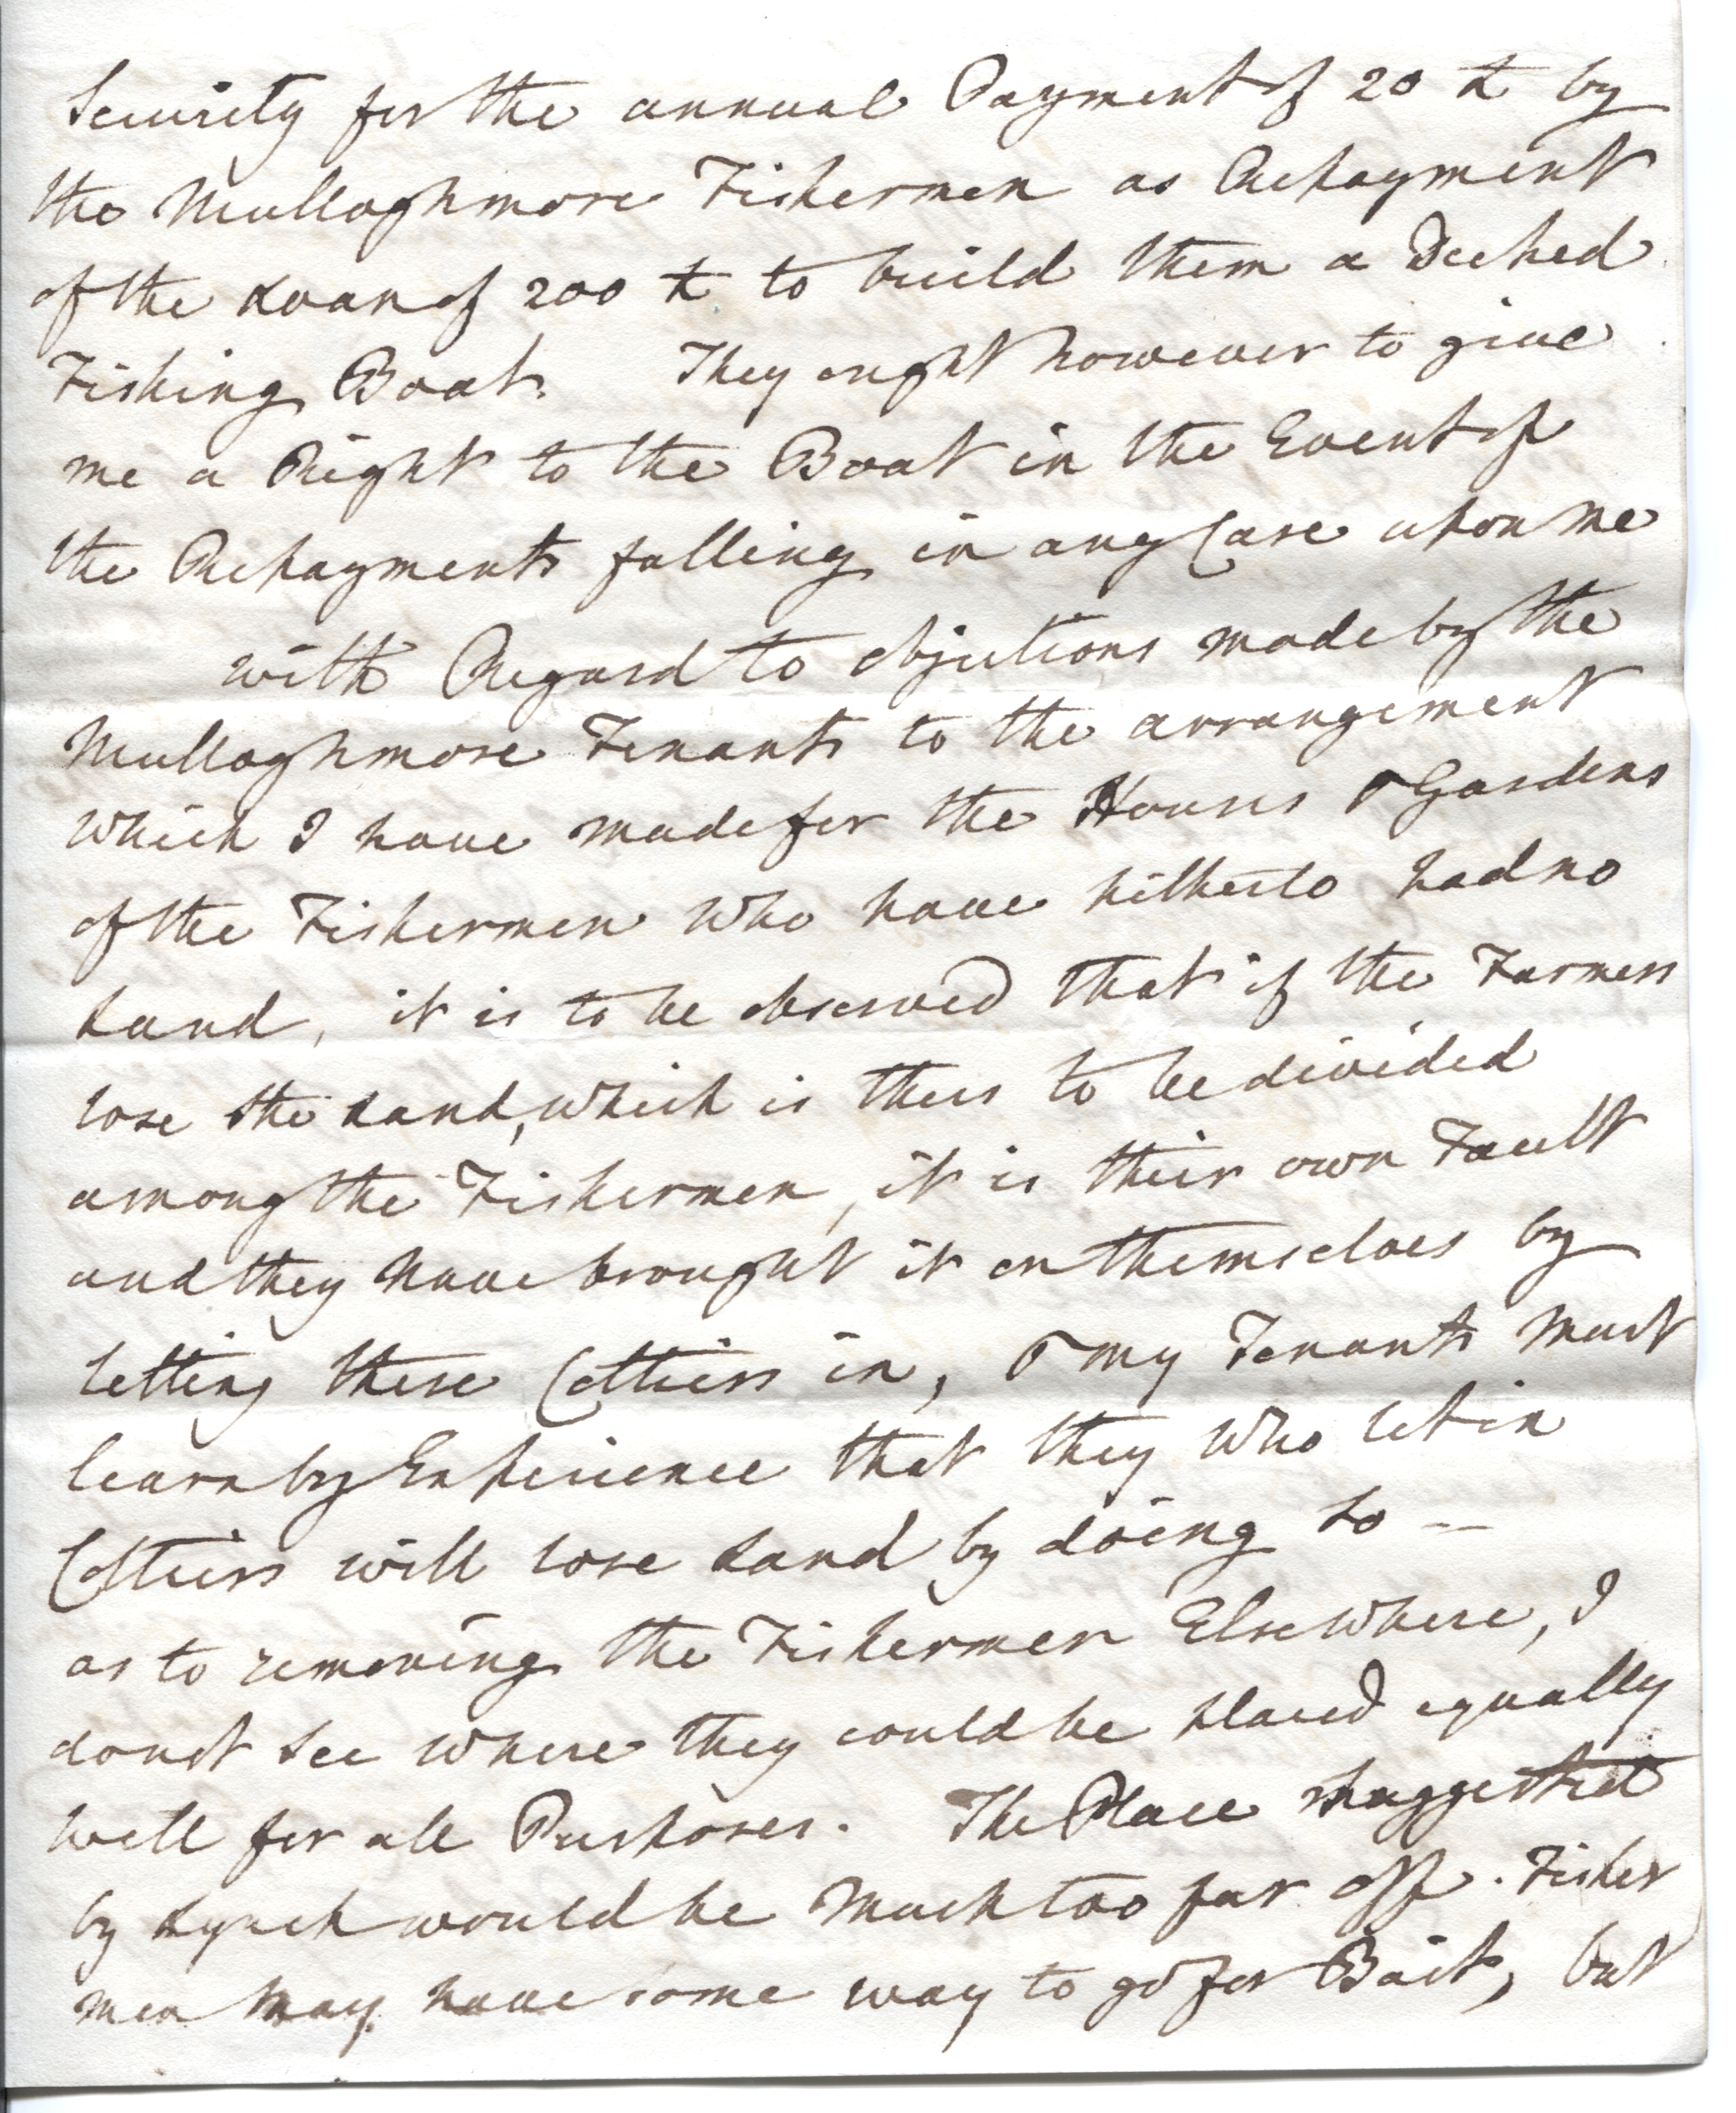 Security for the annual Payment of 20 £ by
the Mullaghmore Fishermen as Repayment
of the Loan of 200 £ to build them a Decked
Fishing Boat. They ought however to give
me a Right to the Boat in the Event of
the Repayments falling in any Case upon me
with Regard to objections made by the
Mullaghmore Tenants to the arrangement
which I have made for the Houses & Gardens
of the Fishermen who have hitherto had no
Land, it is to be observed that if the Farmers
lose the Land, which is thus to be divided
among the Fishermen, it is their own Fault
and they have brought it on themselves by
letting these Cottiers in, & my Tenants must
learn by Experience that they who let in
Cottiers will lose Land by doing so —
as to removing the Fishermen Elsewhere, I
donot see where they could be placed equally
well for all Purposes. The Place suggested
by Lynch would be much too far off. Fisher
men may have some way to go for Bait, but